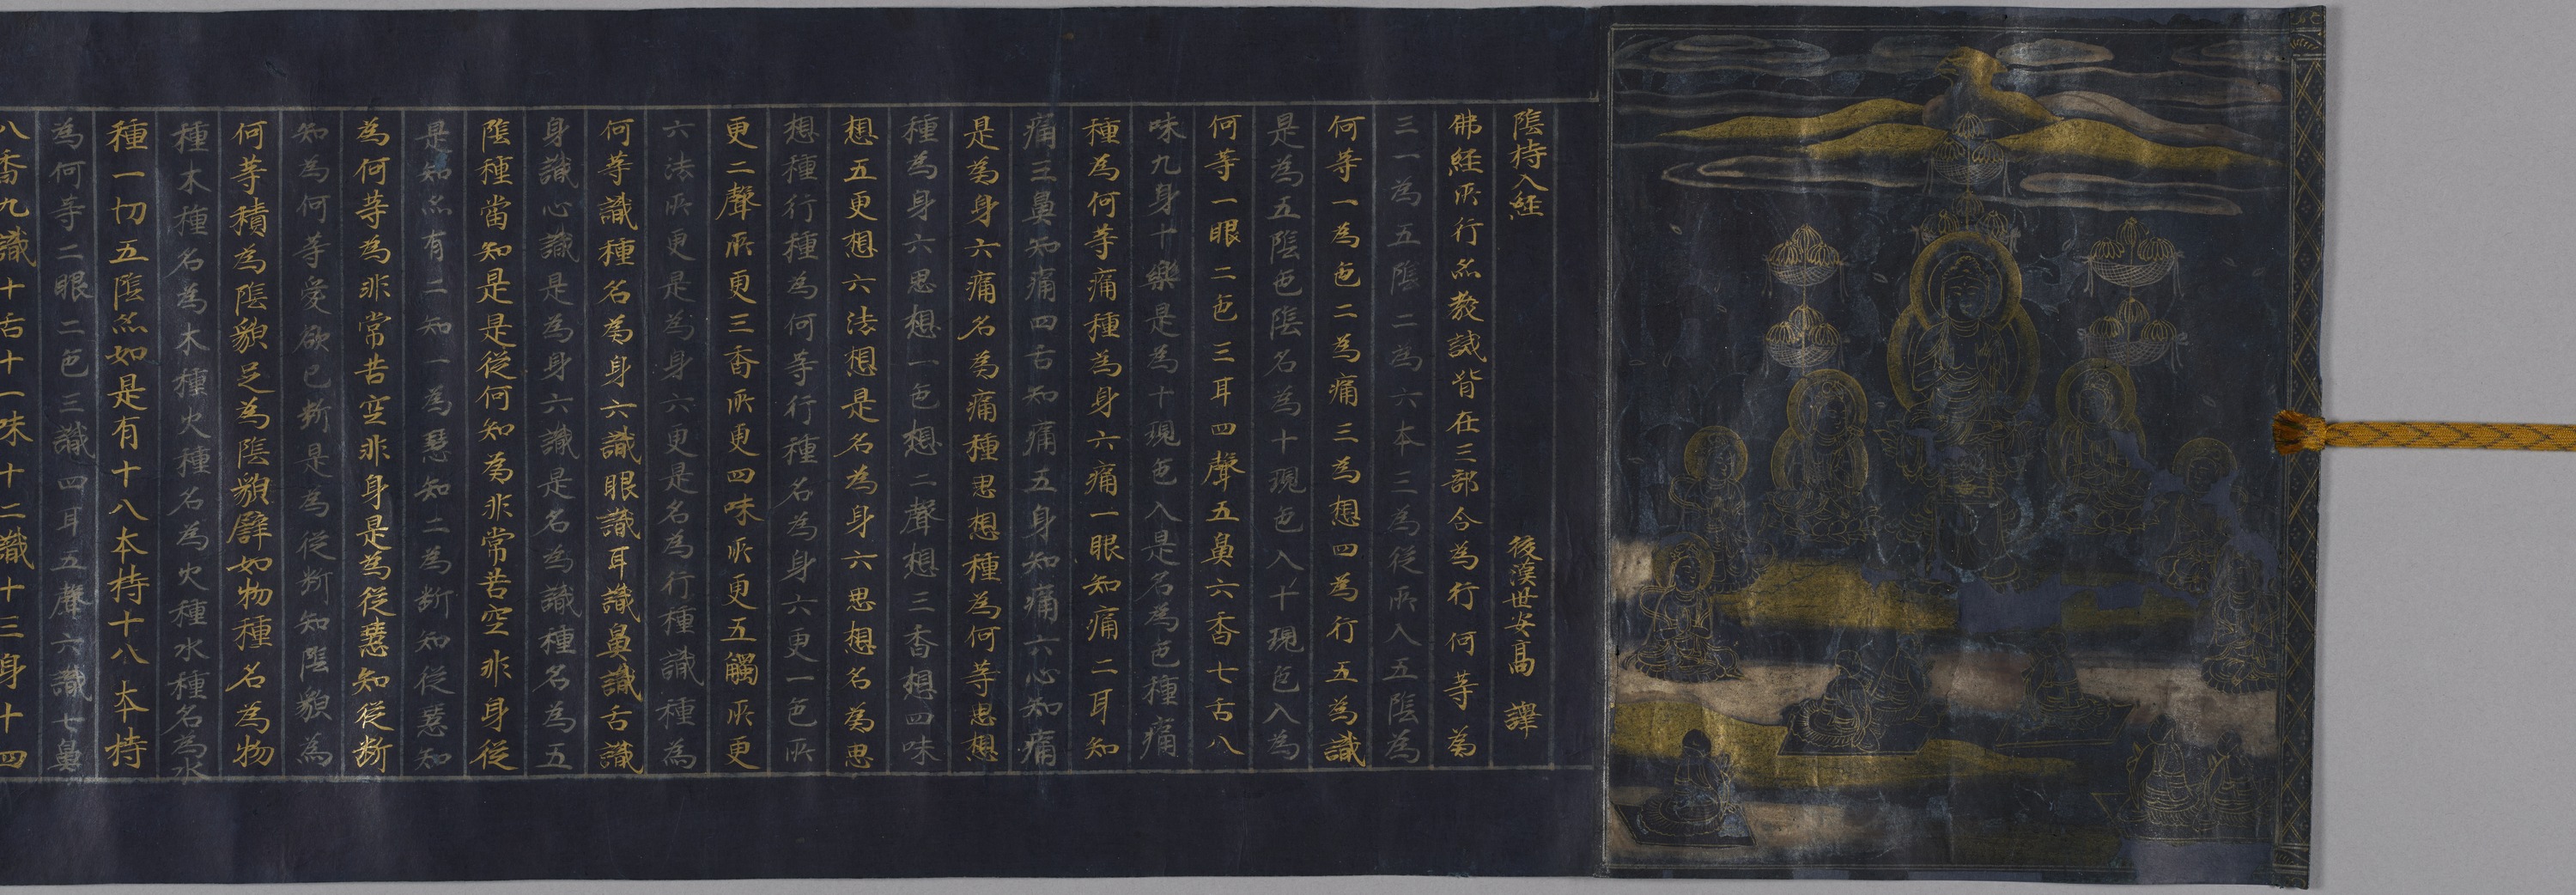 陰持入經　後漢世安高　譯
佛經所行亦教誡皆在三部合為行何等為
三一為五陰二為六本三為從所入五陰為
何等一為色二為痛三為想四為行五為識
是為五陰色陰名為十現色入十現色入為
何等一眼二色三耳四聲五鼻六香七舌八
味九身十樂是為十現色入是名為色種痛
種為何等痛種為身六痛一眼知痛二耳知
痛三鼻知痛四舌知痛五身知痛六心知痛
是為身六痛名為痛種思想種為何等思想
種為身六思想一色想二聲想三香想四味
想五更想六法想是名為身六思想名為思
想種行種為何等行種名為身六更一色所
更二聲所更三香所更四味所更五觸所更
六法所更是為身六更是名為行種識種為
何等識種名為身六識眼識耳識鼻識舌識
身識心識是為身六識是名為識種名為五
陰種當知是是從何知為非常苦空非身從
是知亦有二知一為慧知二為斷知從慧知
為何等為非常苦空非身是為從慧知從斷
知為何等愛欲已斷是為從斷知陰貌為
何等積為陰貌足為陰貌譬如物種名為物
種木種名為木種火種名為火種水種名為水
種一切五陰亦如是有十八本持十八本持
為何等二眼二色三識四耳五聲六識七鼻
八香九識十舌十一味十二識十三身十四